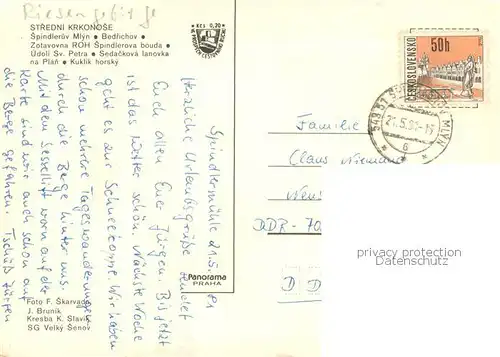 Riesengebirge
STŘEDNÍ KRKONOŠE
Špindlerův Mlýn • Bedřichov •
Zotavovna ROH Špindlerova bouda •
Údolí Sv. Petra • Sedačková lanovka
na Pláň • Kuklík horský
Kčs 0,20
50h
ČESKOSLOVENSKO
543 51
MLÝN
6
Spindlermühle
Herzliche Urlaubsgrüße sendet
Euch allen Euer Jürgen. Bis jetzt
ist das Wetter schön. Nächste Woche
geht es zur Schneekoppe. Wir haben
schon mehrere Tageswanderungen
durch die Berge hinter uns.
Mit dem Sessellift vorn auf der
Karte sind wir auch schon auf
die Berge gefahren. Tschüß Jürgen
Familie
Claus
DDR-70
D D
privacy protection
Datenschutz
Panorama
PRAHA
Foto F. Škarvada,
J. Bruník
Kresba K. Slavík
SG Velký Šenov